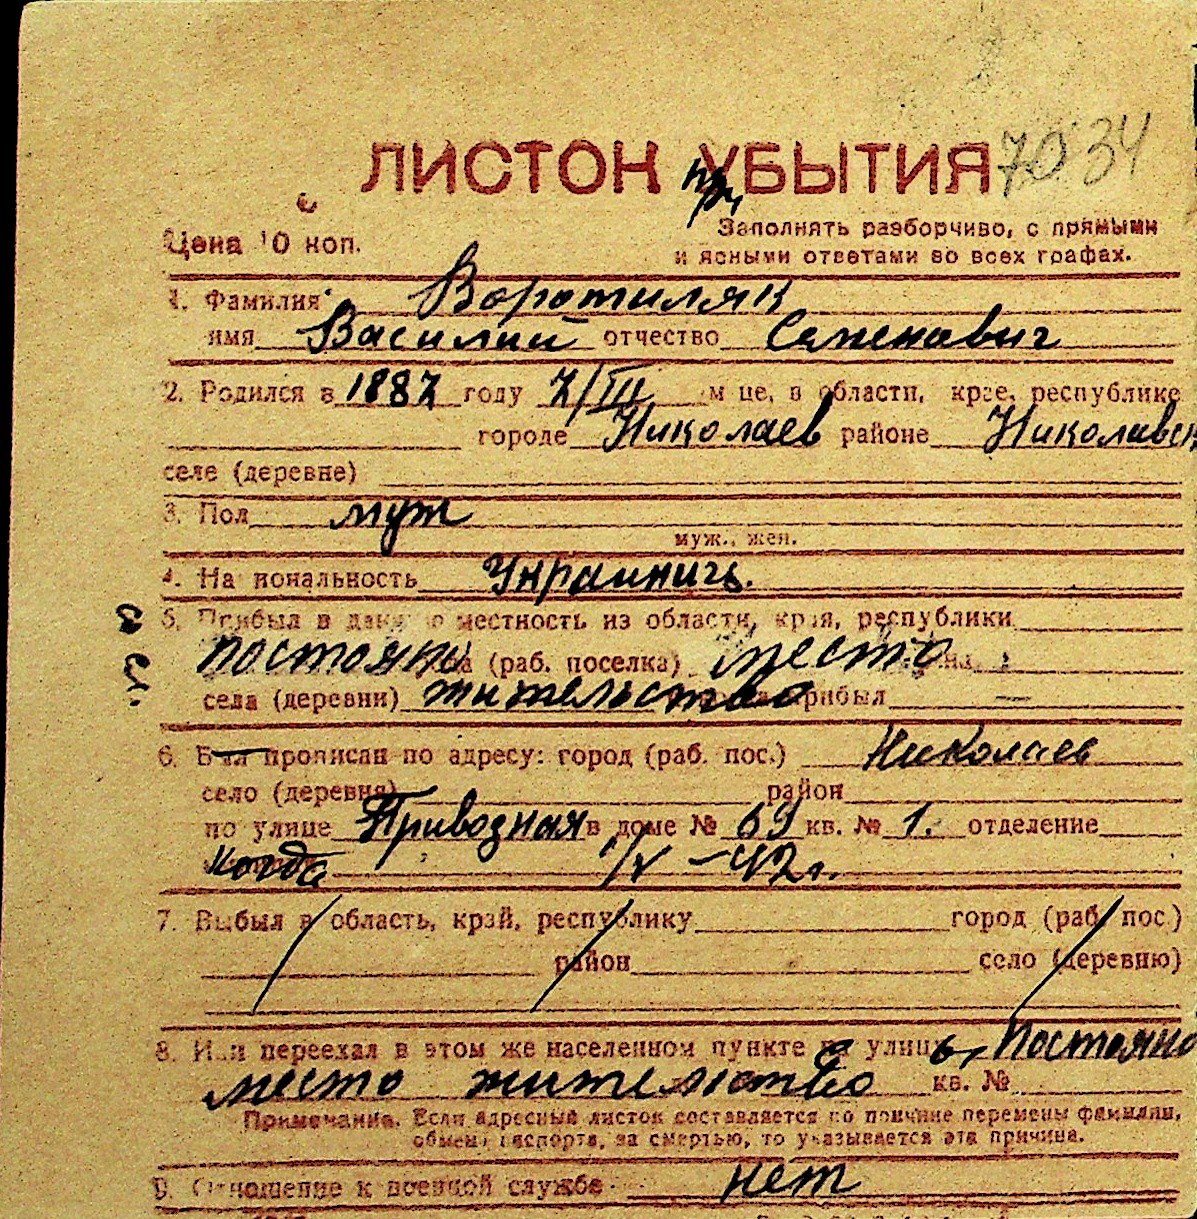 ЛИСТОК УБЫТИЯ 7034
при
Цена 10 коп.
Заполнять разборчиво, с прямыми
и ясными ответами во всех графах.
1. Фамилия Воротиляк
имя Василий отчество Семенавич
2. Родился в 1887 году 7/III м це, в области, крае, республике
городе Николаев районе Николавск
селе (деревне)
3. Пол муж
муж., жен.
4. Национальность Украиниць.
5. Прибыл в данную местность из области, края, республики
постояни (раб. поселка) место
села (деревни) жительство прибыл —
6. Был прописан по адресу: город (раб. пос.) Николаев
село (деревня) район
по улице Приводная в доме № 69 кв. № 1. отделение
когда 1/V – 42 г.
7. Выбыл в область, край, республику город (раб. пос.)
район село (деревню)
8. Или переехал в этом же населенном пункте на улицу Постояно
место жительство кв. №
Примечание. Если адресный листок составляется по причине перемены фамилии,
обмена паспорта, за смертью, то указывается эта причина.
9. Отношение к военной службе нет